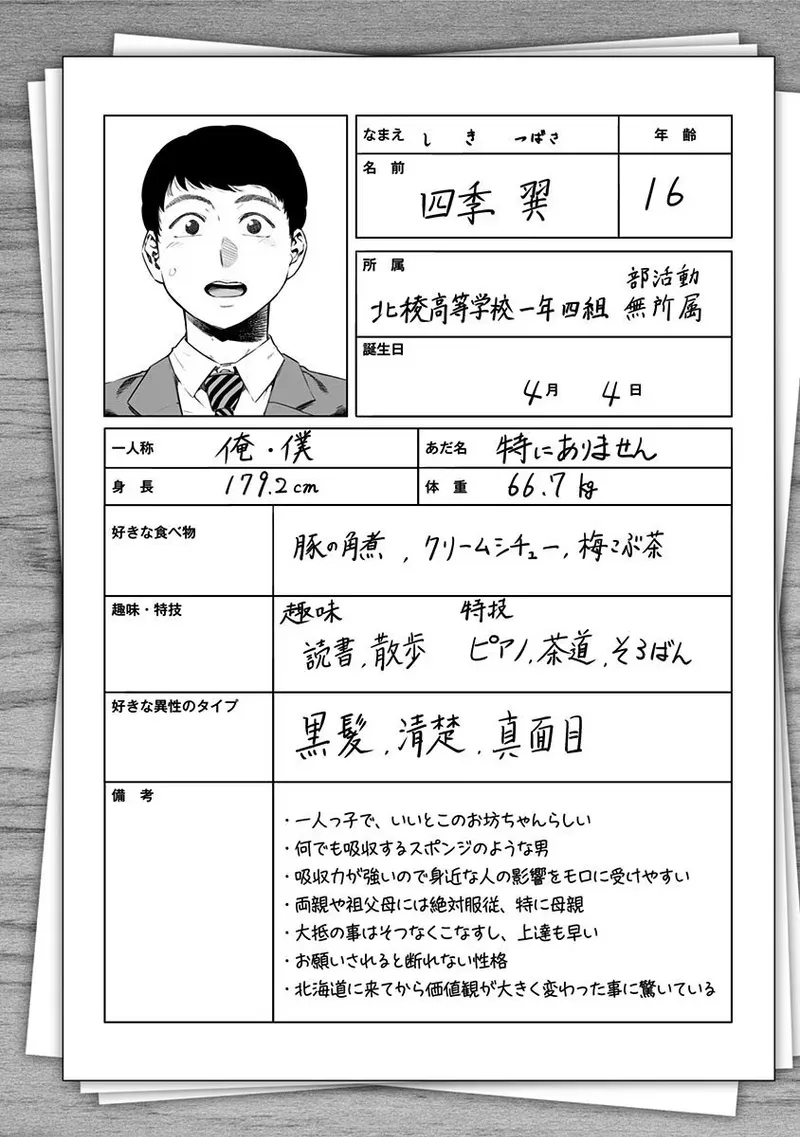 なまえ しき つばさ
年 齢
名 前
四季 翼
16
所 属
北稜高等学校一年四組 部活動
無所属
誕生日
4月 4日
一人称 俺・僕
あだ名 特にありません
身 長 179.2cm
体 重 66.7kg
好きな食べ物
豚の角煮, クリームシチュー, 梅こぶ茶
趣味・特技
趣味 特技
読書, 散歩 ピアノ, 茶道, そろばん
好きな異性のタイプ
黒髪, 清楚, 真面目
備 考
・一人っ子で、いいとこのお坊ちゃんらしい
・何でも吸収するスポンジのような男
・吸収力が強いので身近な人の影響をモロに受けやすい
・両親や祖父母には絶対服従、特に母親
・大抵の事はそつなくこなすし、上達も早い
・お願いされると断れない性格
・北海道に来てから価値観が大きく変わった事に驚いている